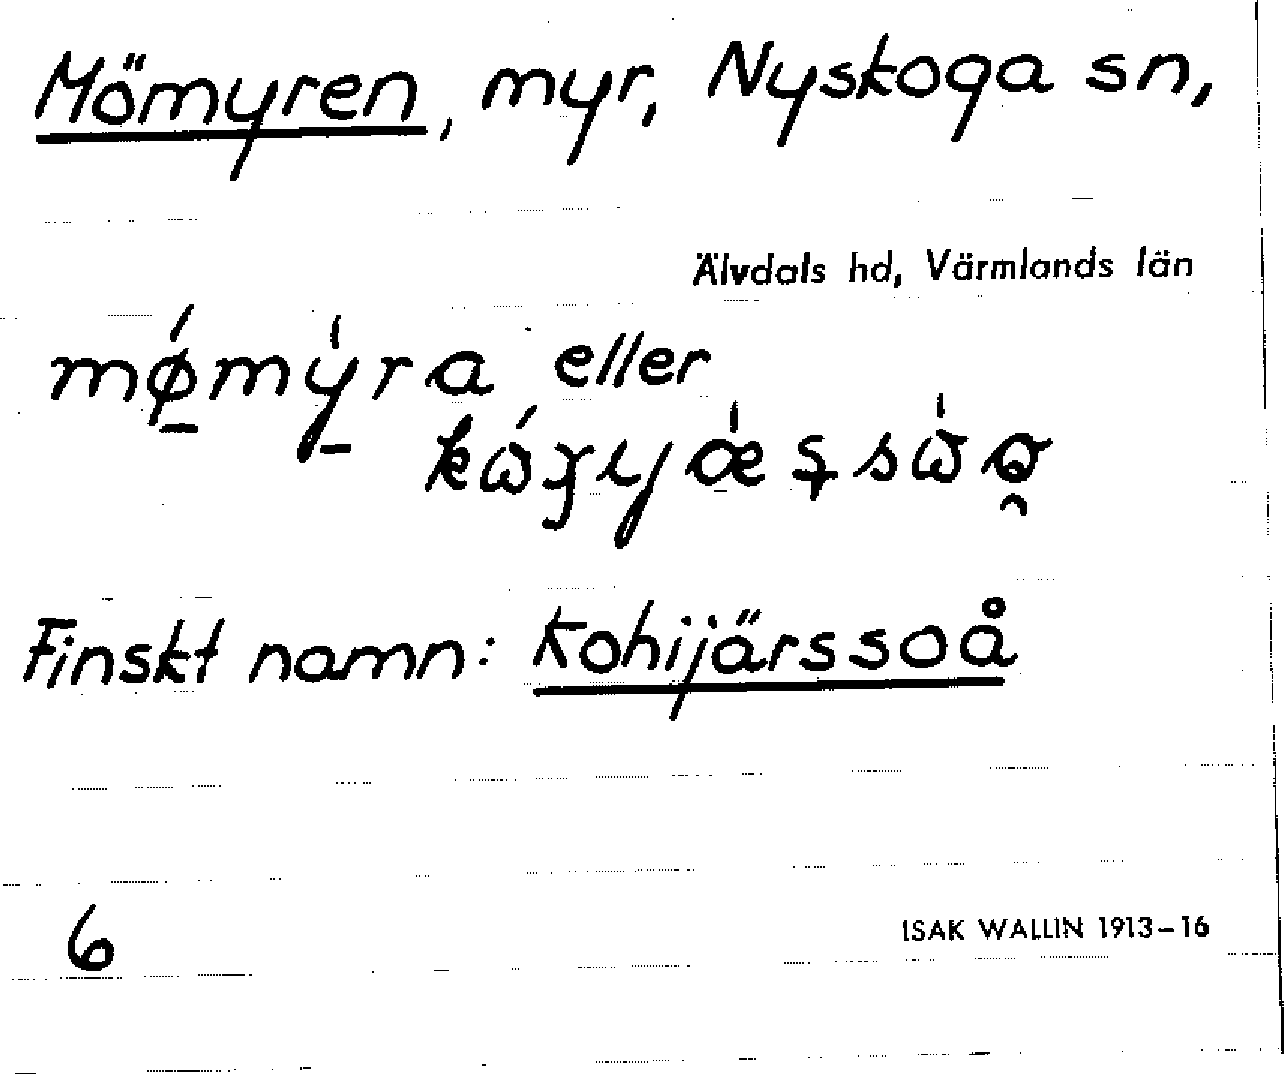 Mömyren, myr, Nyskoga sn,
Älvdals hd, Värmlands län
mǿ̱my̱̍ra eller
Finskt namn: Kohijärssoå
6
ISAK WALLIN 1913-16